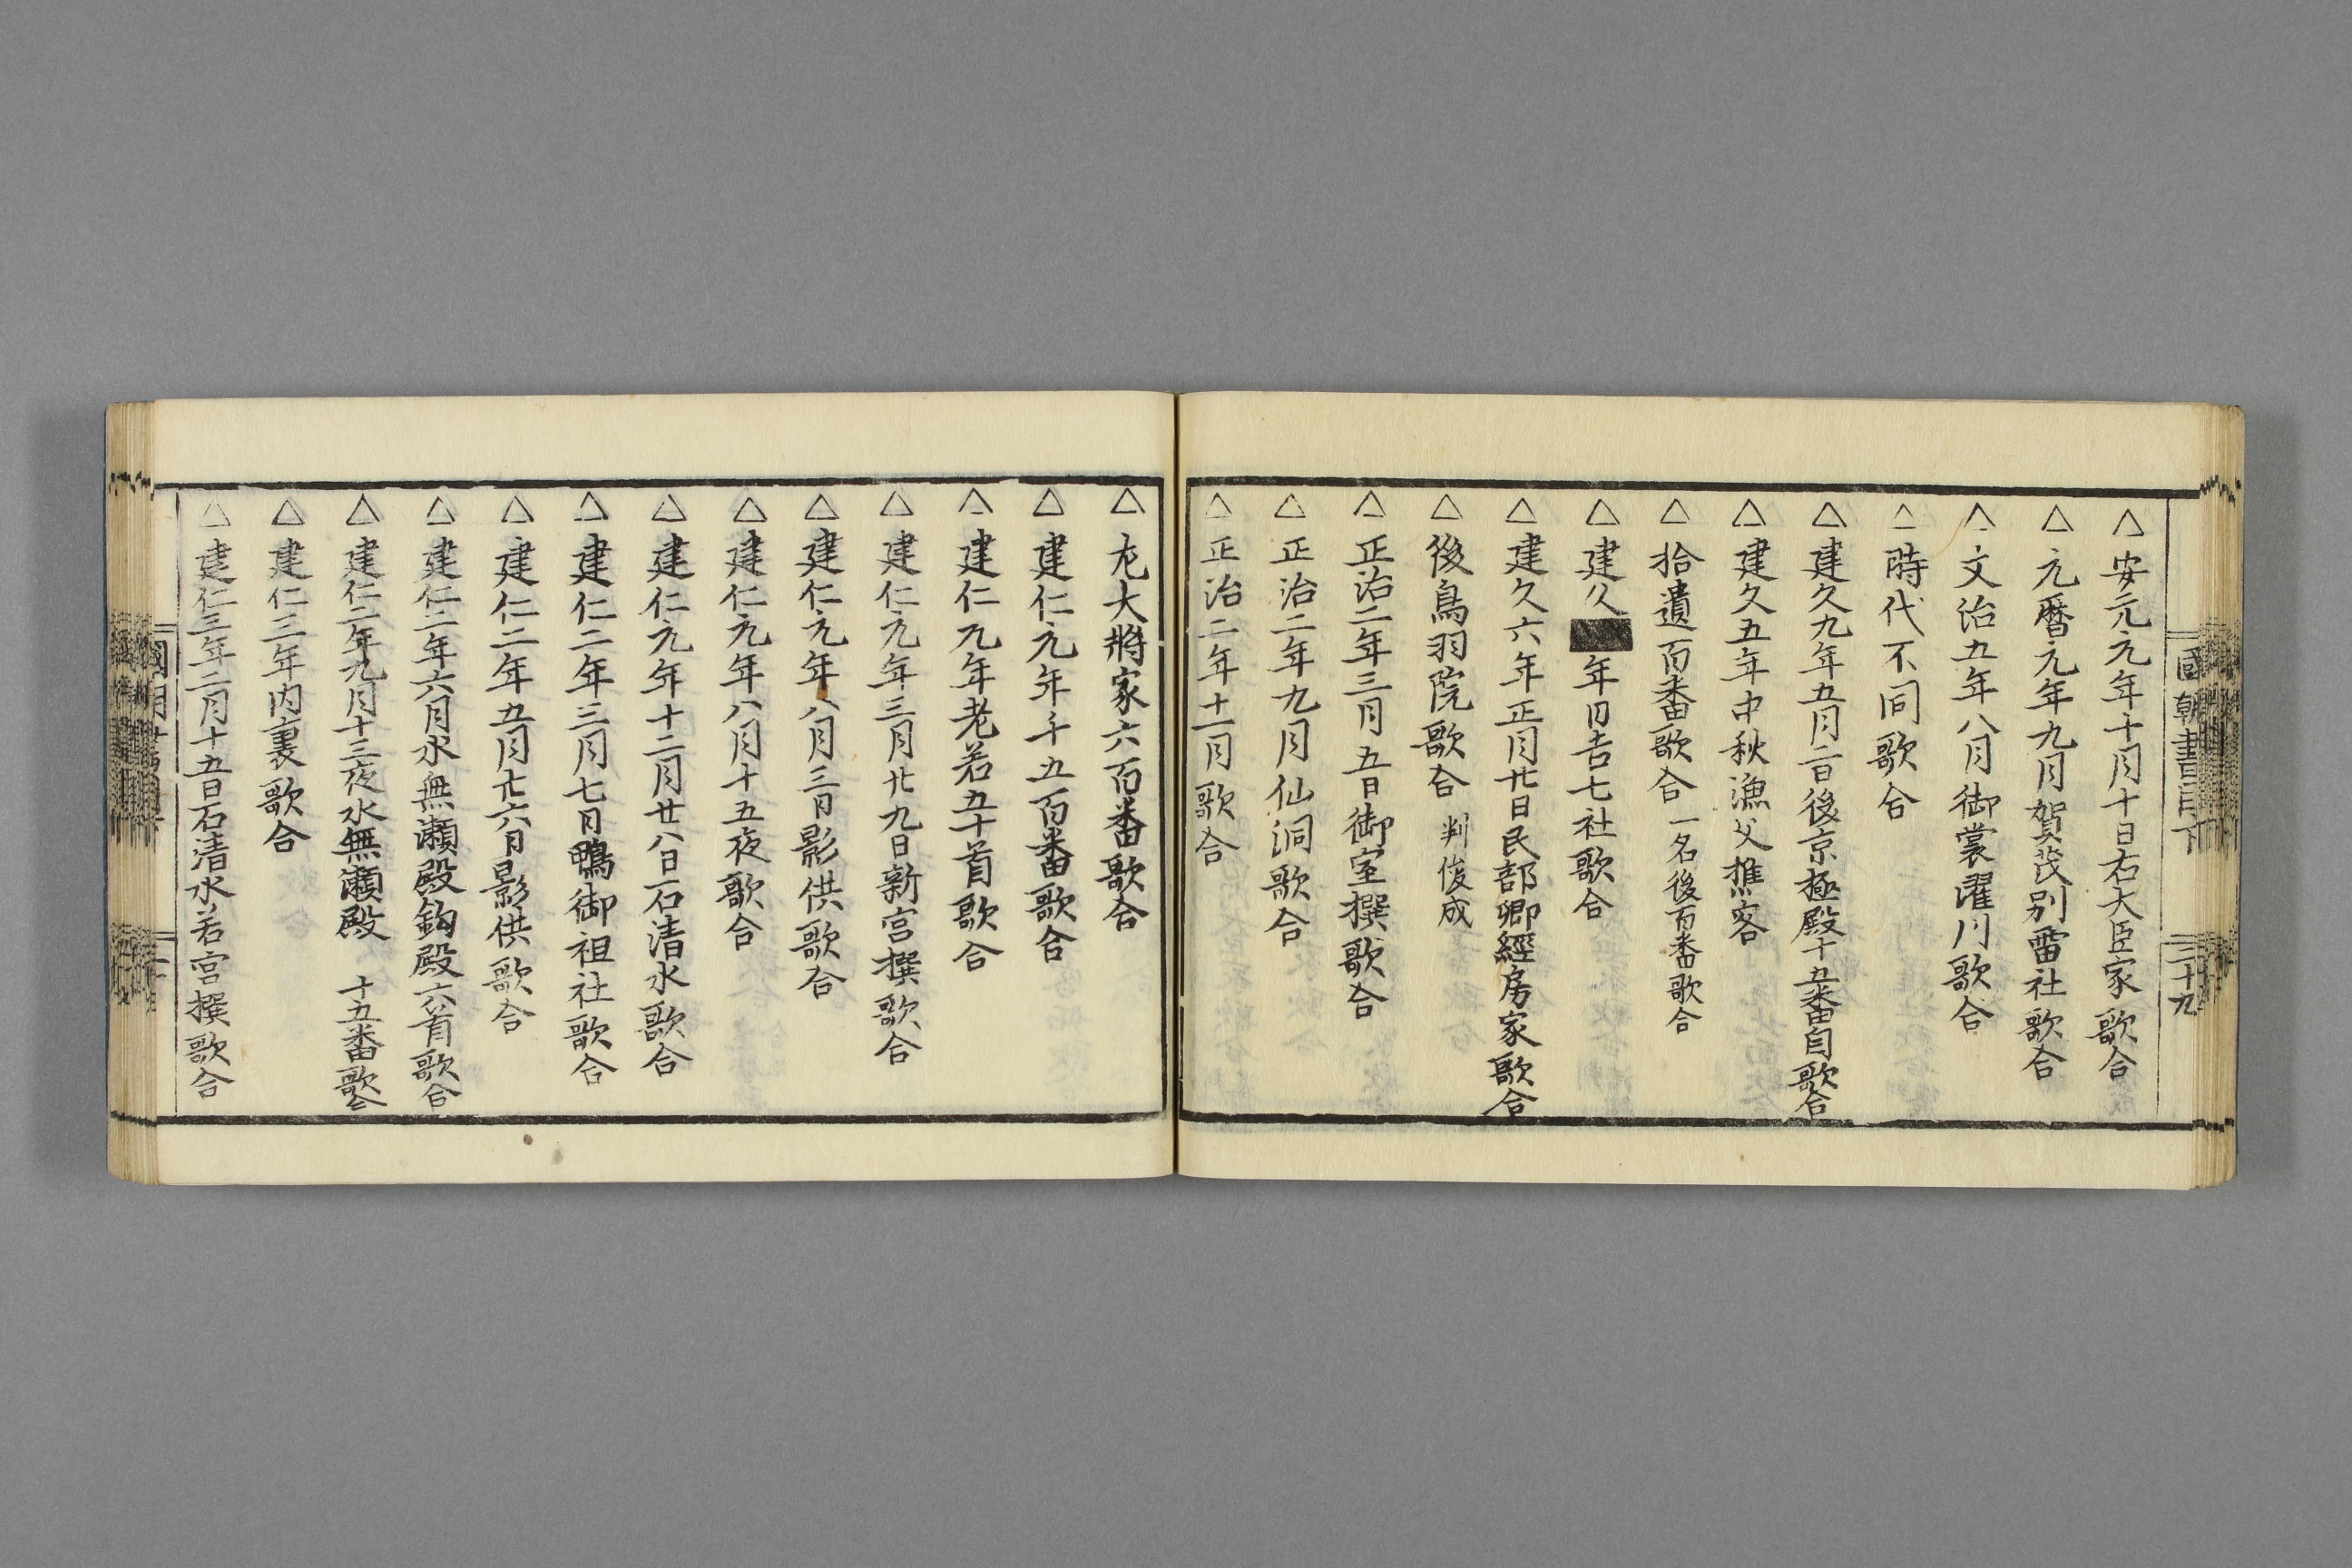 國朝書目下
三十九
△安元元年十月十日右大臣家歌合
△元暦元年九月賀茂別雷社歌合
△文治五年八月御裳濯川歌合
△時代不同歌合
△建久九年五月二日後京極殿十五番自歌合
△建久五年中秋漁父樵客
△拾遺百番歌合 一名後百番歌合
△建久■年日吉七社歌合
△建久六年正月廿日民部卿經房家歌合
△後鳥羽院歌合 判俊成
△正治二年三月五日御室撰歌合
△正治二年九月仙洞歌合
△正治二年十一月歌合
△左大將家六百番歌合
△建仁元年千五百番歌合
△建仁元年老若五十首歌合
△建仁元年三月廿九日新宮撰歌合
△建仁元年八月三日影供歌合
△建仁元年八月十五夜歌合
△建仁元年十二月廿八日石清水歌合
△建仁二年三月七日鴨御祖社歌合
△建仁二年五月廿六日影供歌合
△建仁二年六月水無瀬殿釣殿六首歌合
△建仁二年九月十三夜水無瀬殿 十五番歌合
△建仁三年内裏歌合
△建仁三年二月十五日石清水若宮撰歌合